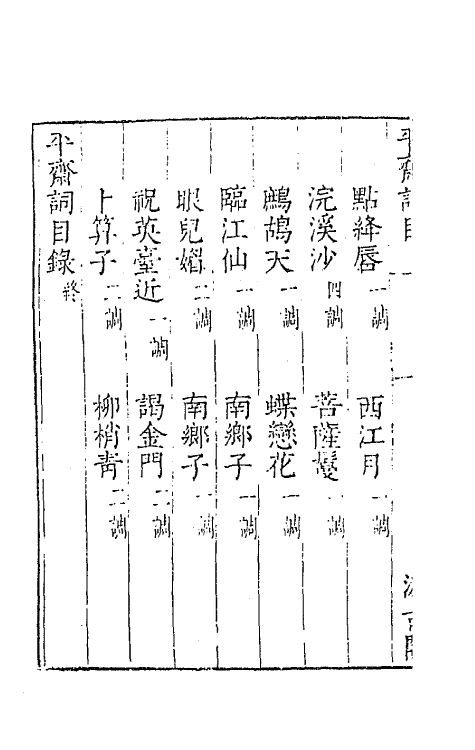 點絳唇一調 西江月一調
浣溪沙四調 菩薩蠻一調
鷓鴣天一調 蝶戀花一調
臨江仙一調 南鄉子一調
眼兒媚二調 南鄉子一調
祝英臺近一調 謁金門二調
卜算子二調 柳梢青二調
平齋詞目錄終